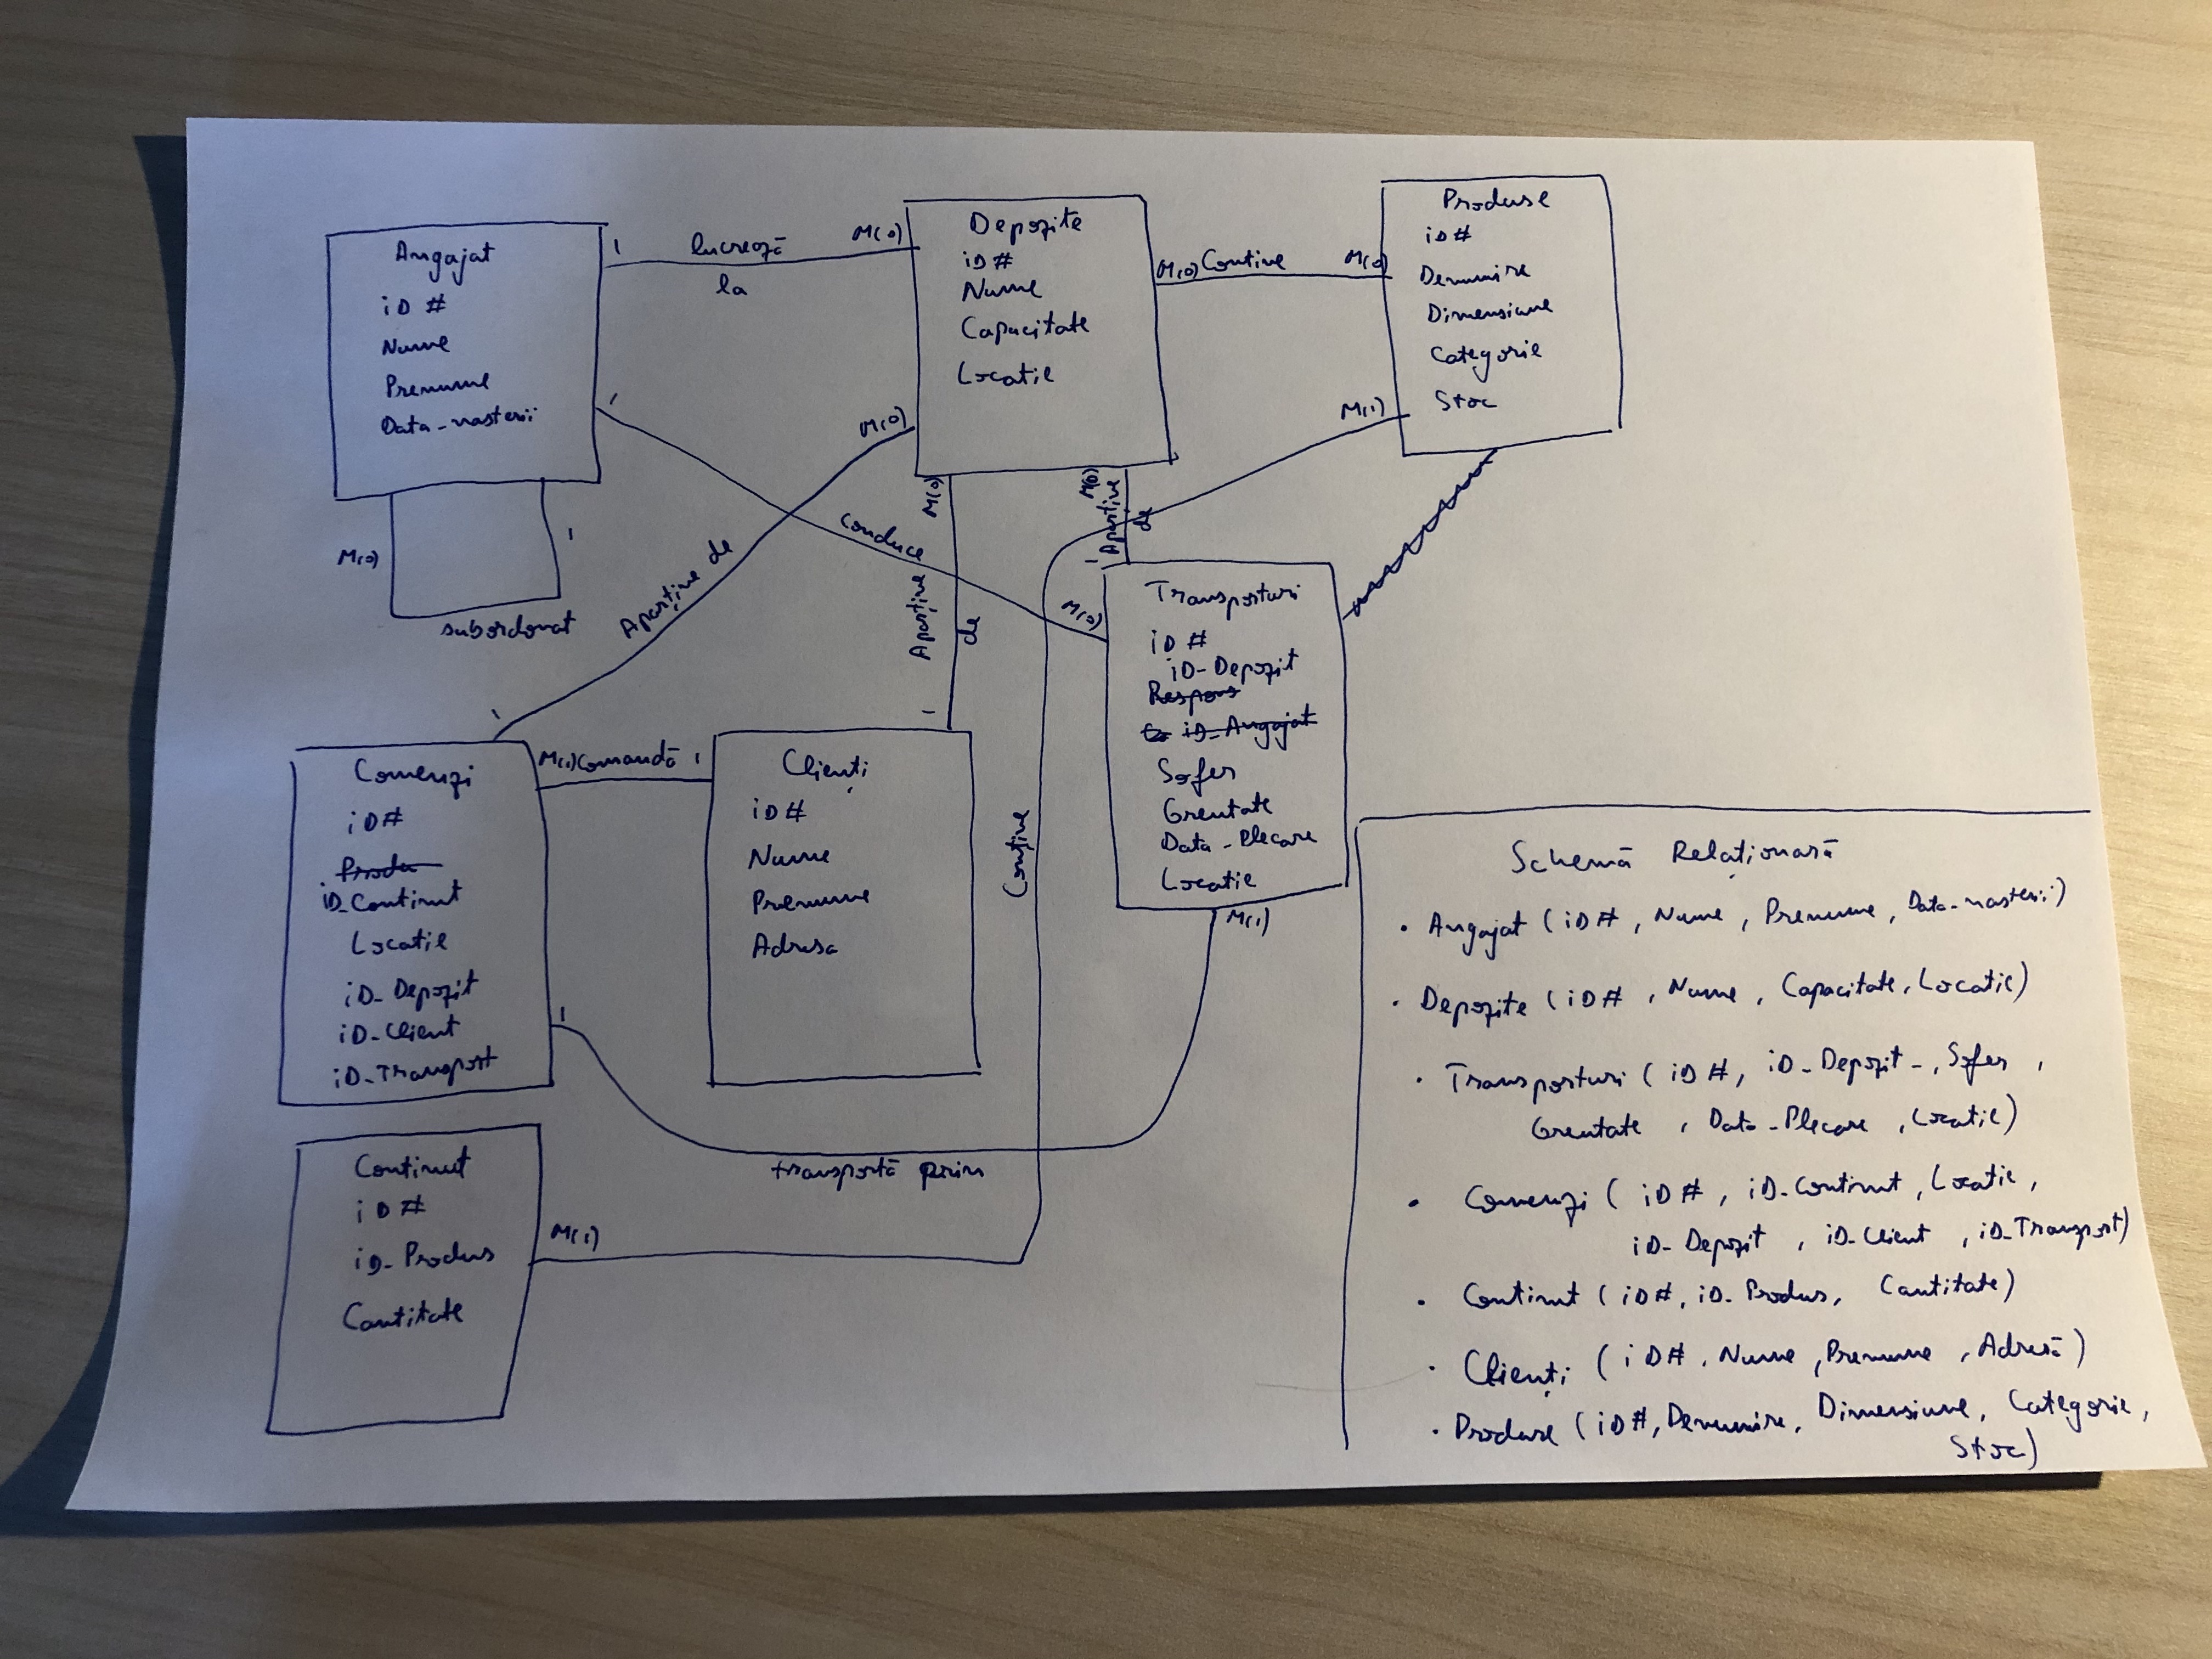 Angajat
iD #
Nume
Prenume
Data_nasterii
1
lucrează
la
M(0)
Depozite
iD #
Nume
Capacitate
Locatie
M(0) Contine M(0)
Produse
iD #
Denumire
Dimensiune
Categorie
Stoc
M(1)
1
M(0)
M(0)
1
subordonat
Aparține de
1
conduce
M(0)
M(0)
Aparține
de
1
M(0)
Aparține
de
1
Transporturi
iD #
iD_Depozit
Respons
iD_Angajat
Sofer
Greutate
Data_Plecare
Locatie
M(1)
Comenzi
iD #
Produ
iD_Continut
Locatie
iD_Depozit
iD_Client
iD_Transport
M(1) Comandă 1
Clienți
iD #
Nume
Prenume
Adresa
1
transportă prin
Conține
Continut
iD #
iD_Produs
Cantitate
M(1)
Schemă Relaționară
• Angajat (iD #, Nume, Prenume, Data_nasterii)
• Depozite (iD #, Nume, Capacitate, Locatie)
• Transporturi (iD #, iD_Depozit_, Sofer,
Greutate, Data_Plecare, Locatie)
• Comenzi (iD #, iD_Continut, Locatie,
iD_Depozit, iD_Client, iD_Transport)
• Continut (iD #, iD_Produs, Cantitate)
• Clienți (iD #, Nume, Prenume, Adresă)
• Produse (iD #, Denumire, Dimensiune, Categorie,
Stoc)